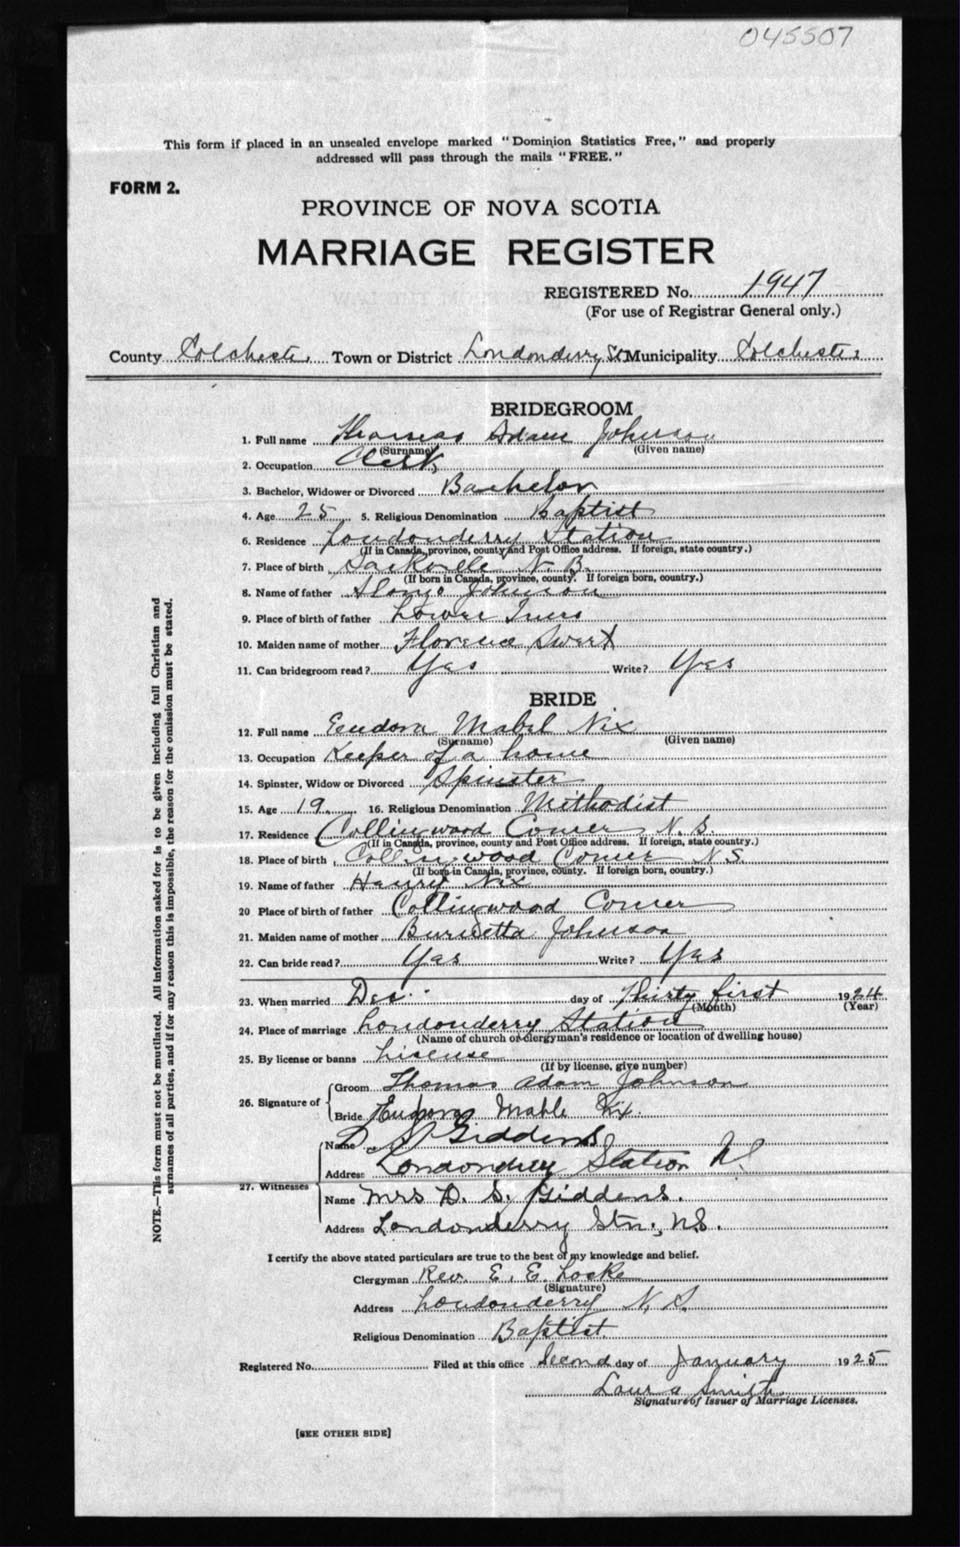 045507
This form if placed in an unsealed envelope marked "Dominion Statistics Free," and properly
addressed will pass through the mails "FREE."
FORM 2.
PROVINCE OF NOVA SCOTIA
MARRIAGE REGISTER
REGISTERED No. 1947
(For use of Registrar General only.)
County Colchester Town or District Londonderry St Municipality Colchester
BRIDEGROOM
1. Full name Thomas Adam Johnson
(Surname) (Given name)
2. Occupation Clerk
3. Bachelor, Widower or Divorced Bachelor
4. Age 25 5. Religious Denomination Baptist
6. Residence Londonderry Station
(If in Canada, province, county and Post Office address. If foreign, state country.)
7. Place of birth Sackville N. B.
(If born in Canada, province, county. If foreign born, country.)
8. Name of father Johnson
9. Place of birth of father Lower
10. Maiden name of mother Florence
11. Can bridegroom read? Yes Write? Yes
BRIDE
12. Full name Eudora Mabel Nix
(Surname) (Given name)
13. Occupation Keeper of a home
14. Spinster, Widow or Divorced Spinster
15. Age 19. 16. Religious Denomination Methodist
17. Residence Collingwood Corner N. S.
(If in Canada, province, county and Post Office address. If foreign, state country.)
18. Place of birth Collingwood Corner N. S.
(If born in Canada, province, county. If foreign born, country.)
19. Name of father Henry Nix
20 Place of birth of father Collingwood Corner
21. Maiden name of mother Burdetta Johnson
22. Can bride read? Yes Write? Yes
23. When married Dec. day of Thirty first 1924
(Month) (Year)
24. Place of marriage Londonderry Station
(Name of church or clergyman's residence or location of dwelling house)
25. By license or banns Lisense
(If by license, give number)
26. Signature of Groom Thomas Adam Johnson
Bride Mable Nix.
27. Witnesses Name D. S. Giddens
Address Londonderry Station NS
Name Mrs D. S. Giddens.
Address Londonderry Stn., N.S.
I certify the above stated particulars are true to the best of my knowledge and belief.
Clergyman Rev. E. E. Locke
(Signature)
Address Londonderry N. S.
Religious Denomination Baptist
Registered No. Filed at this office Second day of January 1925
Laura Smith
Signature of Issuer of Marriage Licenses.
[SEE OTHER SIDE]
NOTE.—This form must not be mutilated. All information asked for is to be given including full Christian and
surnames of all parties, and if for any reason this is impossible, the reason for the omission must be stated.